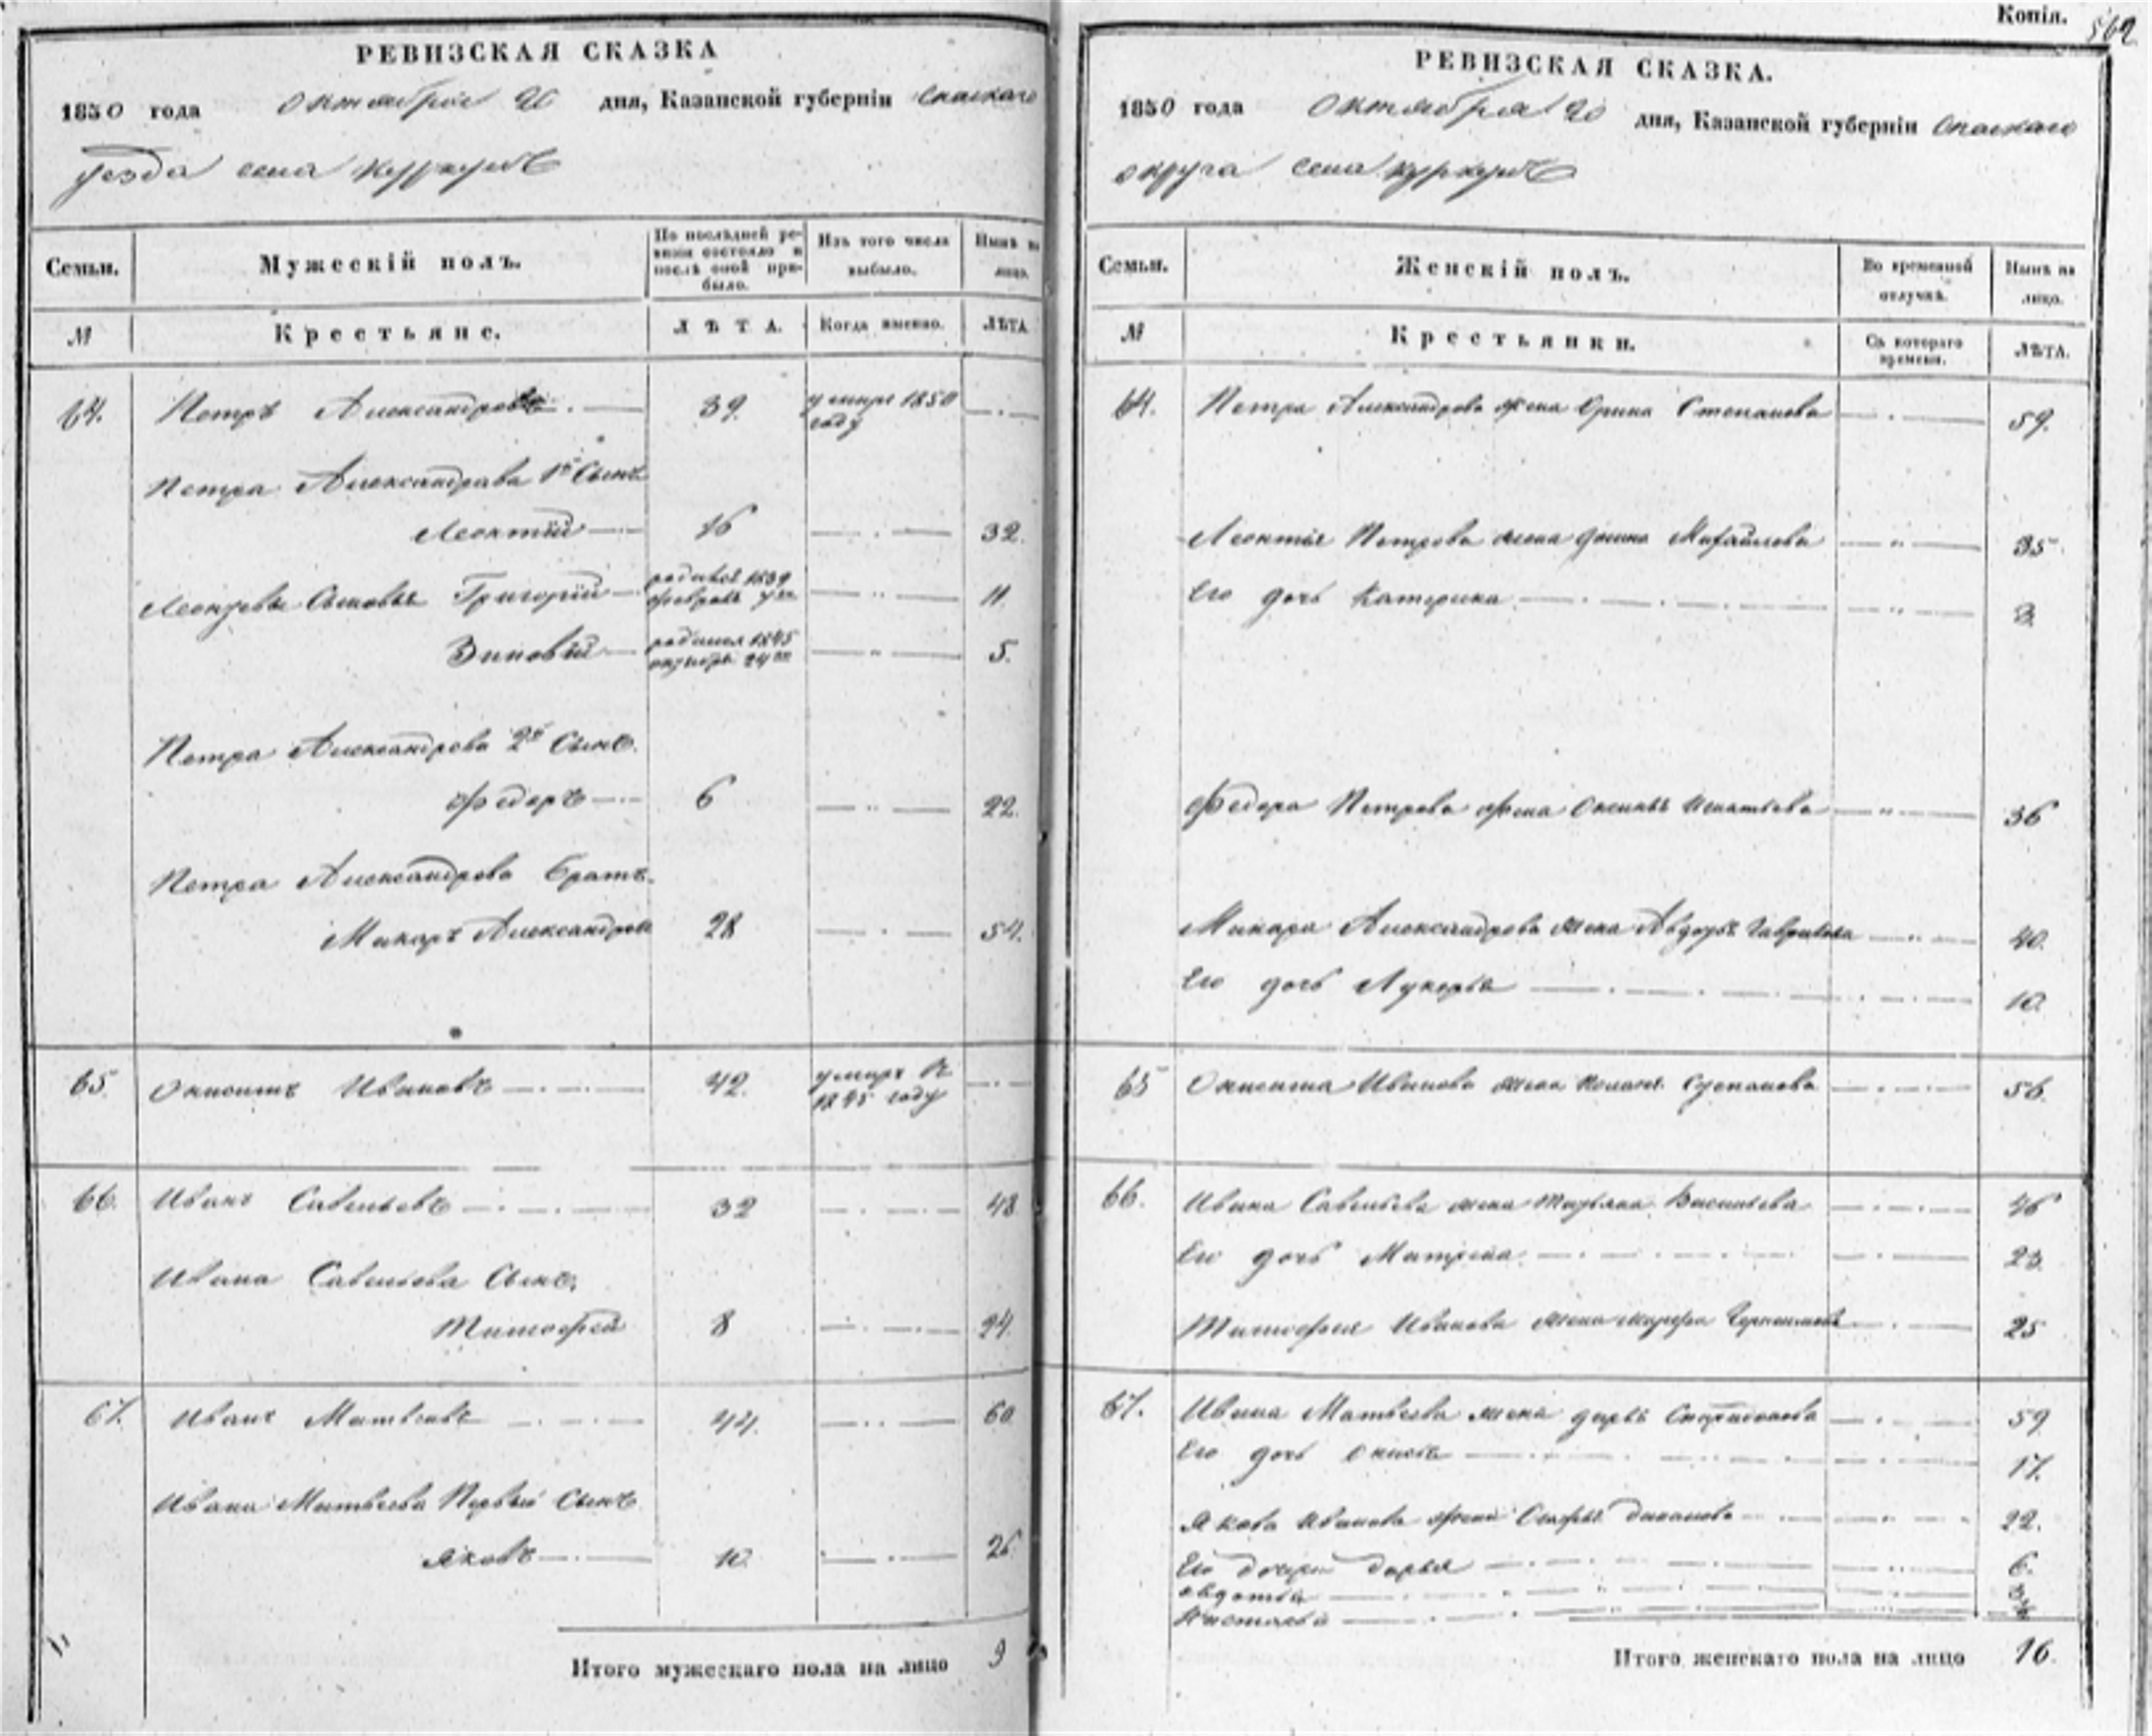 РЕВИЗСКАЯ СКАЗКА
1850 года октября 20 дня, Казанской губерніи Спаскаго
уезда села
Семьи.
Мужескій полъ.
По послѣдней ревизіи состояло и послѣ оной прибыло.
Изъ того числа выбыло.
Нынѣ на лицо.
№
Крестьяне.
ЛѢТА.
Когда именно.
ЛѢТА.
64. Петръ Александровъ 39. умиръ 1850 году
Петра Александрова 1й Сынъ
Леонтій 16 32.
Леонтьевы Сыновья Григорій родился 1839 февраля 11.
Зиновій родился 1845 октября 24го 5.
Петра Александрова 2й Сынъ.
Федоръ 6 22.
Петра Александрова Братъ.
Макаръ Александровъ 28 54.
65. Онисимъ Ивановъ 42. умиръ въ 1845 году
66. Иванъ Савельевъ 32 48
Ивана Савельева Сынъ.
Тимофей 8 24.
67. Иванъ Матвеевъ 44. 60
Ивана Матвеева Первый Сынъ
Яковъ 10. 26
Итого мужескаго пола на лицо 9
Копія. 562
РЕВИЗСКАЯ СКАЗКА.
1850 года Октября 20 дня, Казанской губерніи Спаскаго
округа села
Семьи.
Женскій полъ.
Во временной отлучкѣ.
Нынѣ на лицо.
№
Крестьянки.
Съ котораго времени.
ЛѢТА.
64. Петра Александрова жена Орина Степанова 59.
Леонтія Петрова жена Михайлова 35.
Его дочь Катерина 3
Федора Петрова жена Игнатьева 36
Макара Александрова жена Авдотья Гаврилова 40.
Его дочь Лукерья 10.
65 Онисима Иванова жена Степанова 56.
66. Ивана Савельева жена Татьяна Васильева 46
Его дочь Матрена 23.
Тимофея Иванова жена Марфа 25
67. Ивана Матвеева жена Дарья Спиридонова 59
Его дочь 17.
Якова Иванова жена 22.
Его дочери Дарья 6.
Авдотья 3
Настасья ½
Итого женскаго пола на лицо 16.